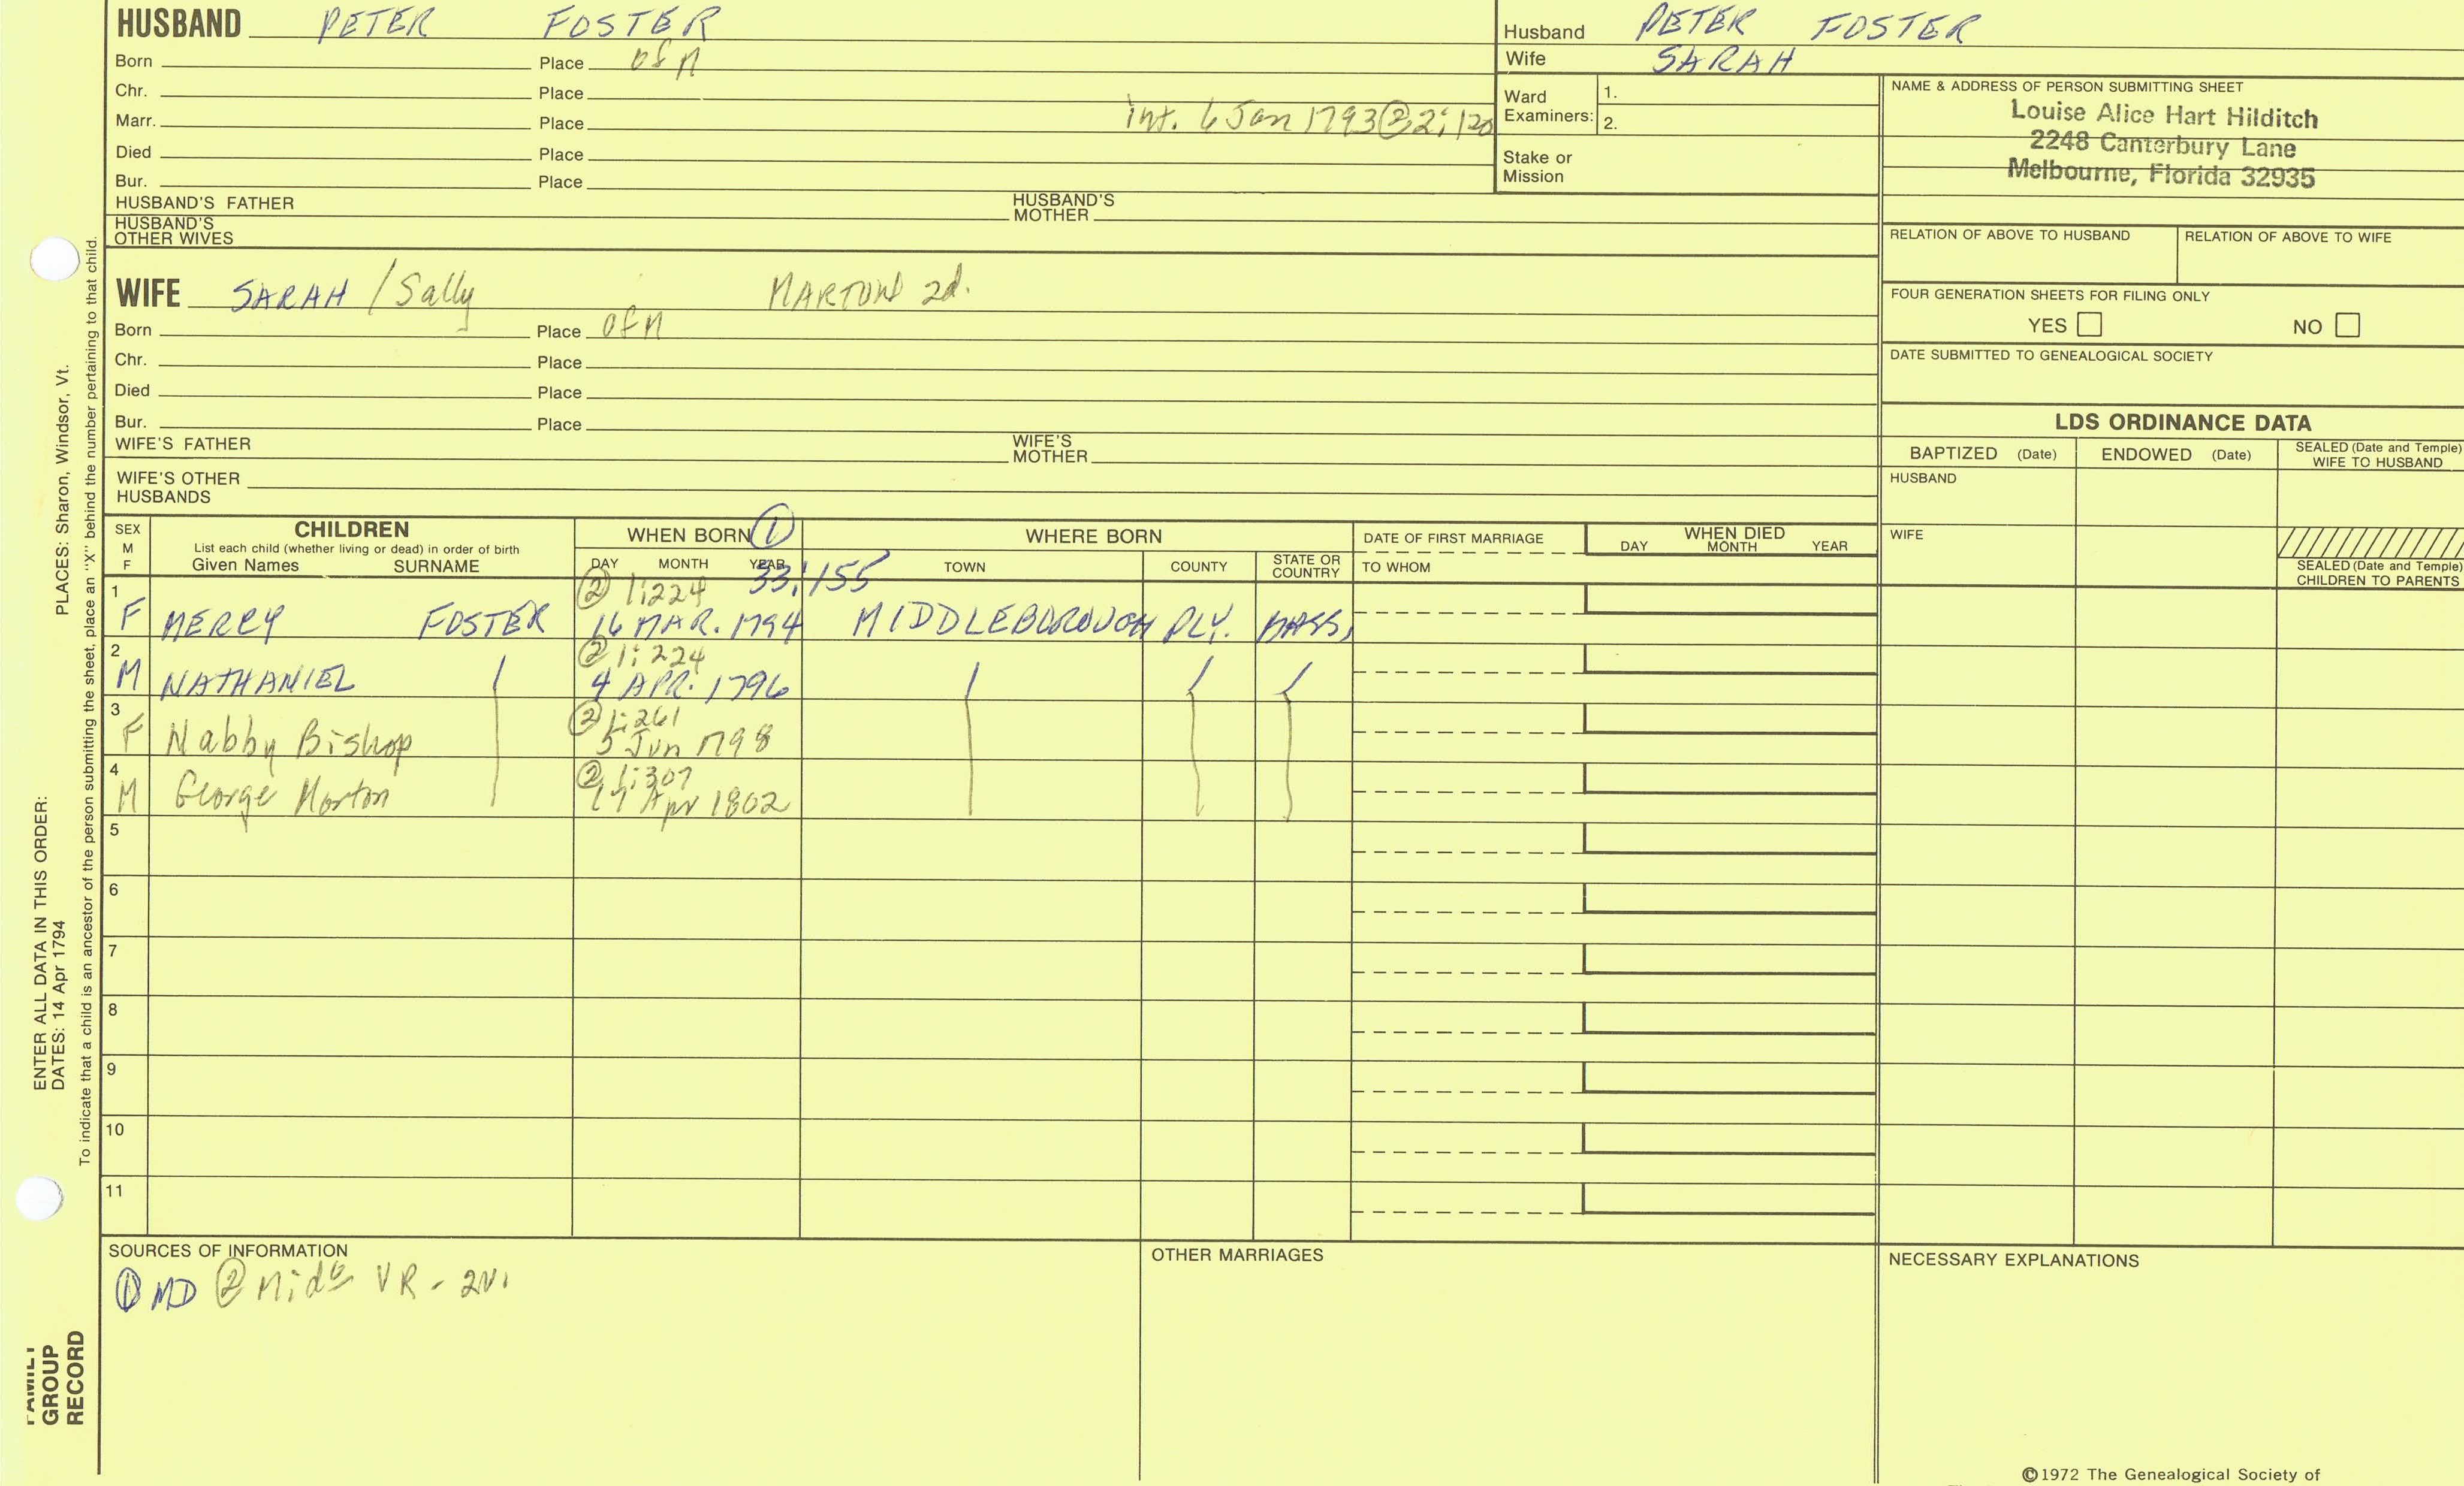 HUSBAND PETER FOSTER
Born Place of M
Chr. Place
Marr. Place int. 6 Jan 1793 ② 2:120
Died Place
Bur. Place
HUSBAND'S FATHER HUSBAND'S MOTHER
HUSBAND'S OTHER WIVES
Husband PETER FOSTER
Wife SARAH
Ward Examiners: 1.
2.
Stake or Mission
NAME & ADDRESS OF PERSON SUBMITTING SHEET
Louise Alice Hart Hilditch
2248 Canterbury Lane
Melbourne, Florida 32935
RELATION OF ABOVE TO HUSBAND RELATION OF ABOVE TO WIFE
FOUR GENERATION SHEETS FOR FILING ONLY
YES NO
DATE SUBMITTED TO GENEALOGICAL SOCIETY
WIFE SARAH / Sally MARTON 2d.
Born Place of M
Chr. Place
Died Place
Bur. Place
WIFE'S FATHER WIFE'S MOTHER
WIFE'S OTHER HUSBANDS
LDS ORDINANCE DATA
BAPTIZED (Date) ENDOWED (Date) SEALED (Date and Temple) WIFE TO HUSBAND
HUSBAND
WIFE
SEALED (Date and Temple) CHILDREN TO PARENTS
SEX M F
CHILDREN
List each child (whether living or dead) in order of birth
Given Names SURNAME
WHEN BORN ①
DAY MONTH YEAR
33:155
WHERE BORN
TOWN COUNTY STATE OR COUNTRY
DATE OF FIRST MARRIAGE
TO WHOM
WHEN DIED
DAY MONTH YEAR
② 1:224
1 F MERCY FOSTER 16 MAR. 1794 MIDDLEBOROUGH PLY. MASS.
② 1:224
2 M NATHANIEL / 4 APR. 1796 / / /
② 1:261
3 F Nabby Bishop 5 Jun 1798
② 1:307
4 M George Morton 17 Apr 1802
5
6
7
8
9
10
11
SOURCES OF INFORMATION
① MD ② Midb VR - 2V.
OTHER MARRIAGES
NECESSARY EXPLANATIONS
©1972 The Genealogical Society of
PLACES: Sharon, Windsor, Vt.
ENTER ALL DATA IN THIS ORDER:
DATES: 14 Apr 1794
To indicate that a child is an ancestor of the person submitting the sheet, place an "X" behind the number pertaining to that child.
FAMILY
GROUP
RECORD